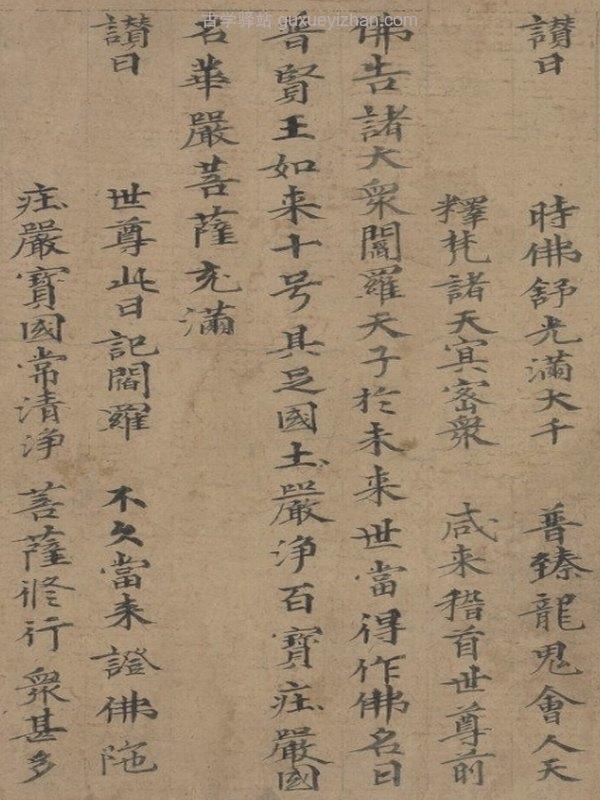 古学驿站 guxueyizhan.com
讃曰 時佛舒光滿大千 普臻龍鬼會人天
釋梵諸天冥密衆 咸来稽首世尊前
佛告諸大衆閻羅天子於未来世當得作佛名曰
普賢王如来十号具足國土嚴淨百寶疰嚴國
名華嚴菩薩充滿
讃曰 世尊此日記閻羅 不久當来證佛陁
疰嚴寶國常清淨 菩薩修行衆甚多